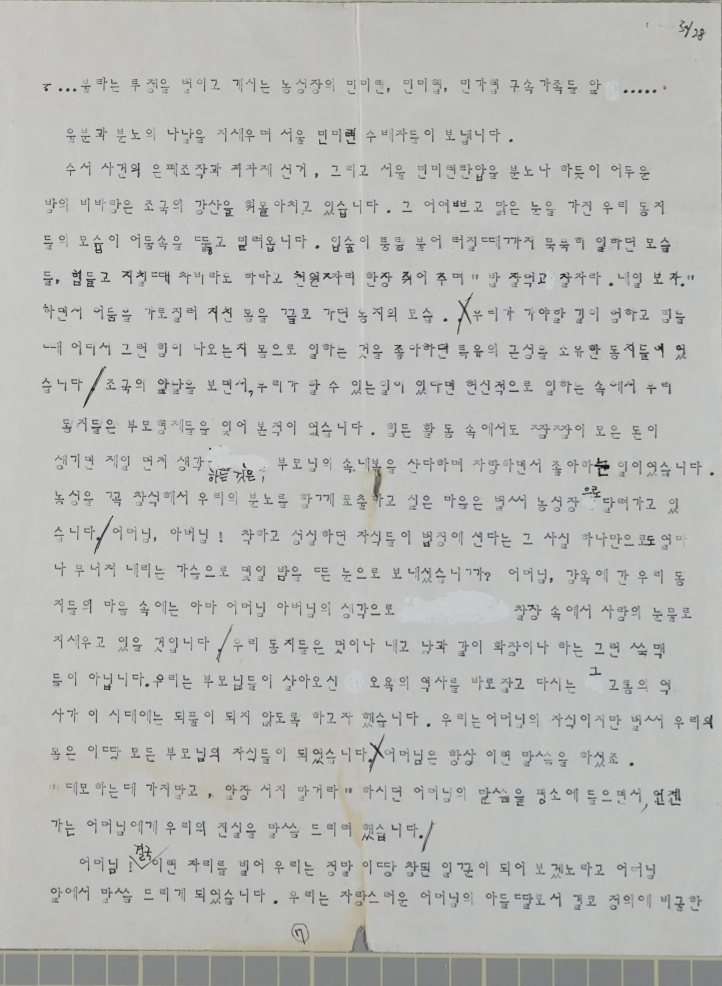 3월/28
? ...불타는 투쟁을 벌이고 계시는 농성장의 민미련, 민미협, 민가협 구속가족들 앞 .....
울분과 분노의 나날을 지새우며 서울 민미련 수배자들이 보냅니다.
수서 사건의 은폐조작과 지자제 선거, 그리고 서울 민미련탄압을 분노나 하듯이 어두운
밤의 비바람은 조국의 강산을 휘몰아치고 있습니다. 그 어여쁘고 맑은 눈을 가진 우리 동지
들의 모습이 어둠속을 뚫고 밀려옵니다. 입술이 퉁퉁 불어 터질때까지 묵묵히 일하던 모습
들, 힘들고 지칠때 차비라도 하라고 천원짜리 한장 쥐어 주며 "밥 잘먹고 잘자라. 내일 보자."
하면서 어둠을 가로질러 지친 몸을 끌고 가던 동지의 모습. 우리가 가야할 길이 험하고 힘들
때 어디서 그런 힘이 나오는지 몸으로 일하는 것을 좋아하던 특유의 근성을 소유한 동지들이 었
습니다/조국의 앞날을 보면서, 우리가 할 수 있는일이 있다면 헌신적으로 일하는 속에서 우리
동지들은 부모형제들을 잊어 본적이 없습니다. 힘든 활동 속에서도 짬짬이 모은 돈이
생기면 제일 먼저 생각하는 것은, 부모님의 속내복을 산다하며 자랑하면서 좋아하는 일이었습니다.
농성을 꼭 참석해서 우리의 분노를 함께 표출하고 싶은 마음은 벌써 농성장으로 달려가고 있
습니다./어머님, 아버님! 착하고 성실하던 자식들이 법정에 선다는 그 사실 하나만으로도 얼마
나 무너져 내리는 가슴으로 몇일 밤을 뜬 눈으로 보내셨습니까? 어머님, 감옥에 간 우리 동
지들의 마음 속에는 아마 어머님 아버님의 생각으로 철창 속에서 사랑의 눈물로
지새우고 있을 것입니다./우리 동지들은 멋이나 내고 낭과 같이 화장이나 하는 그런 쑥맥
들이 아닙니다. 우리는 부모님들이 살아오신 오욕의 역사를 바로잡고 다시는 그 고통의 역
사가 이 시대에는 되풀이 되지 않도록 하고자 했습니다. 우리는어머님의 자식이지만 벌써 우리의
몸은 이땅 모든 부모님의 자식들이 되었습니다. 어머님은 항상 이런 말씀을 하셨죠.
"데모하는데 가지말고, 앞장 서지 말거라" 하시던 어머님의 말씀을 평소에 들으면서, 언젠
가는 어머님에게 우리의 진실을 말씀 드리려 했습니다./
어머님! 결국 이런 자리를 빌어 우리는 정말 이땅 참된 일꾼이 되어 보겠노라고 어머님
앞에서 말씀 드리게 되었습니다. 우리는 자랑스러운 어머님의 아들딸로서 결코 정의에 비굴한
7